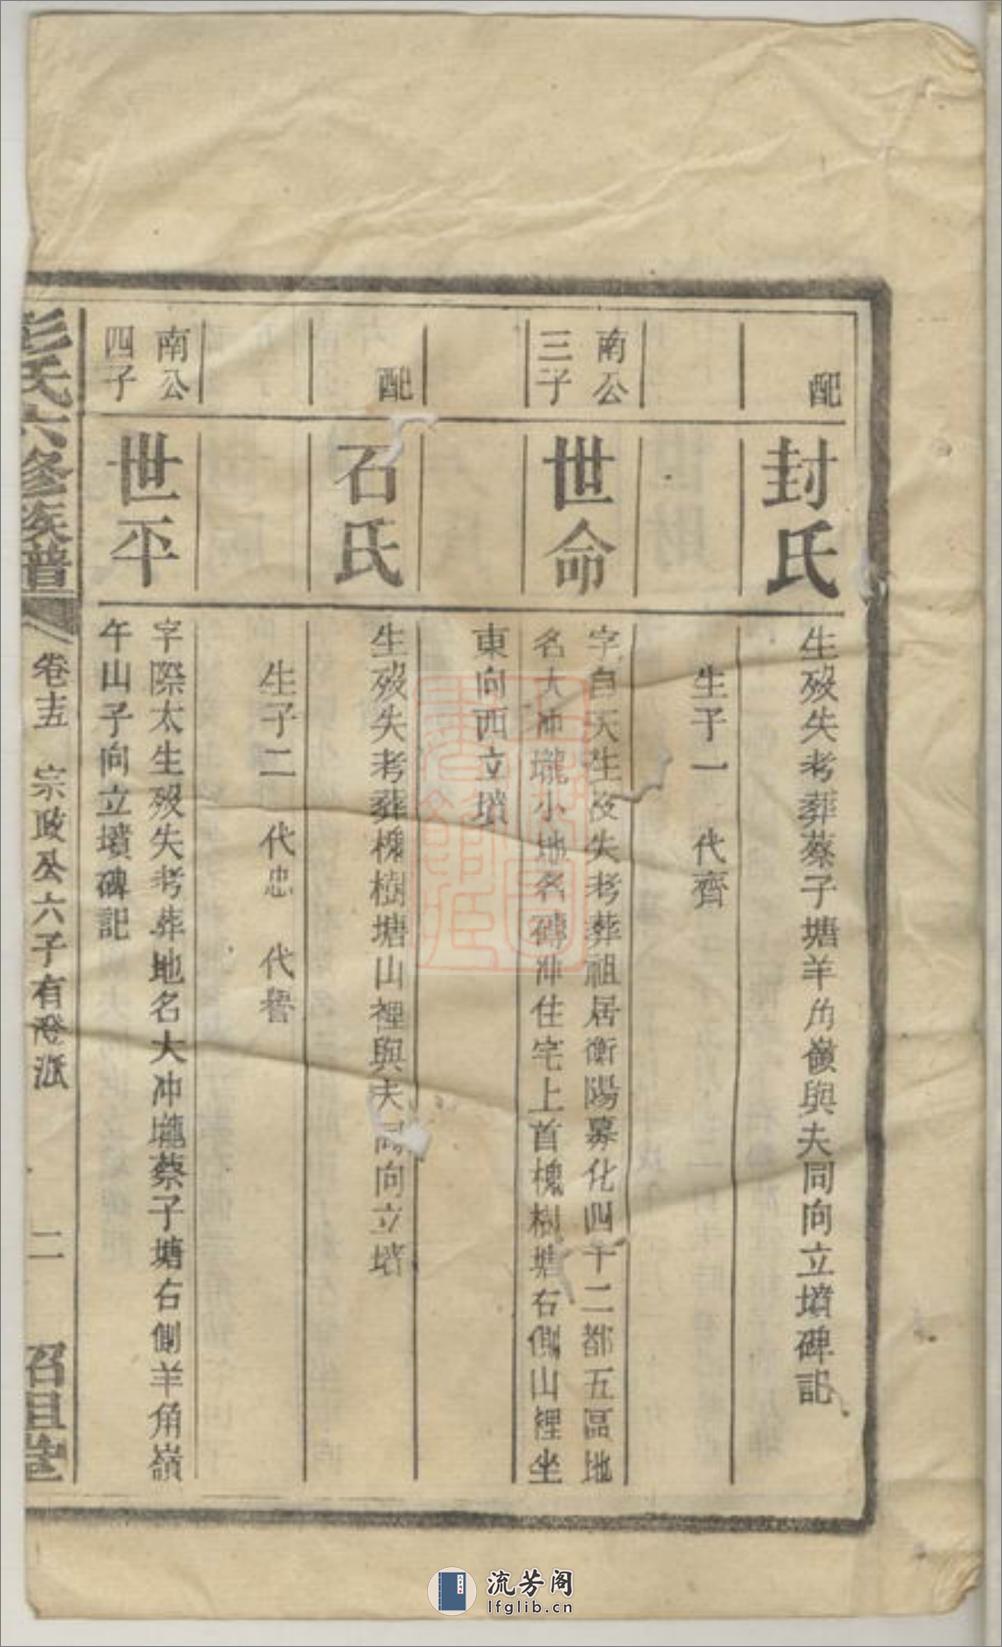 配
封氏
生歿失考葬蔡子塘羊角嶺與夫同向立墳碑記
生子一 代齊
南公
三子
世命
字自天生歿失考葬祖居衡陽慕化四十二都五區地
名大冲壠小地名磚冲住宅上首槐樹塘右側山裡坐
東向西立墳
配
石氏
生歿失考葬槐樹塘山裡與夫同向立墳
生子二 代忠 代魯
南公
四子
世平
字際太生歿失考葬地名大冲壠蔡子塘右側羊角嶺
午山子向立墳碑記
彭氏六修族譜
卷十五 宗政公六子有澄派
二
流芳阁
lfglib.cn